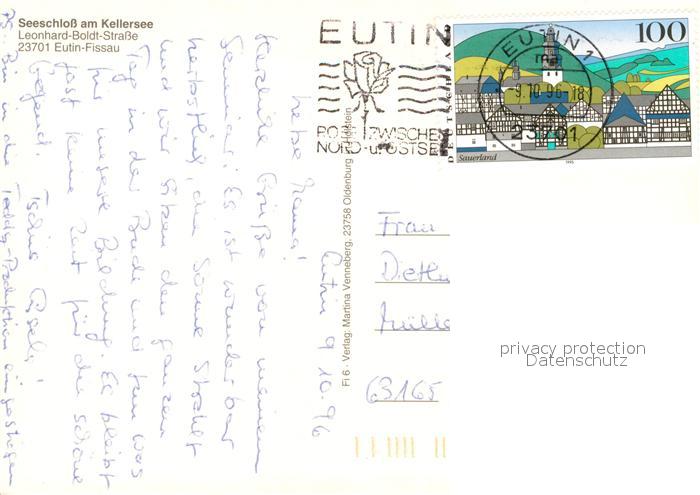 Seeschloß am Kellersee
Leonhard-Boldt-Straße
23701 Eutin-Fissau
EUTIN
ROSE ZWISCHEN
NORD- u. OSTSEE
EUTIN 1
ma
-9.10.96-18
23701
100
Sauerland
1995
Fi 6 · Verlag: Martina Venneberg, 23758 Oldenburg / Holstein
Eutin 9.10.96
Liebe Mama!
Herzliche Grüße von meinem
Seminar! Es ist wunderbar
herbstlich, die Sonne strahlt
und wir sitzen den ganzen
Tag in der Bude und tun was
für unsere Bildung. Es bleibt
fast keine Zeit für die schöne
Gegend. Tschüs Gisela!
PS. Bin in die Teddy-Produktion eingestiegen
Frau
63165
privacy protection
Datenschutz